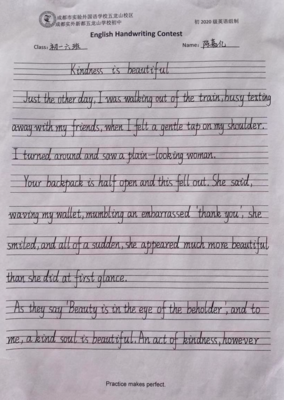 成都市实验外国语学校五龙山校区
成都实外新都五龙山学校初中
初2020级英语组制
English Handwriting Contest
Class: 初一六班 Name:
Kindness is beautiful
Just the other day, I was walking out of the train, busy texting
away with my friends, when I felt a gentle tap on my shoulder.
I turned around and saw a plain-looking woman.
Your backpack is half open and this fell out. She said,
waving my wallet, mumbling an embarrassed 'thank you', she
smiled, and all of a sudden, she appeared much more beautiful
than she did at first glance.
As they say 'Beauty is in the eye of the beholder', and to
me, a kind soul is beautiful. An act of kindness, however
Practice makes perfect.